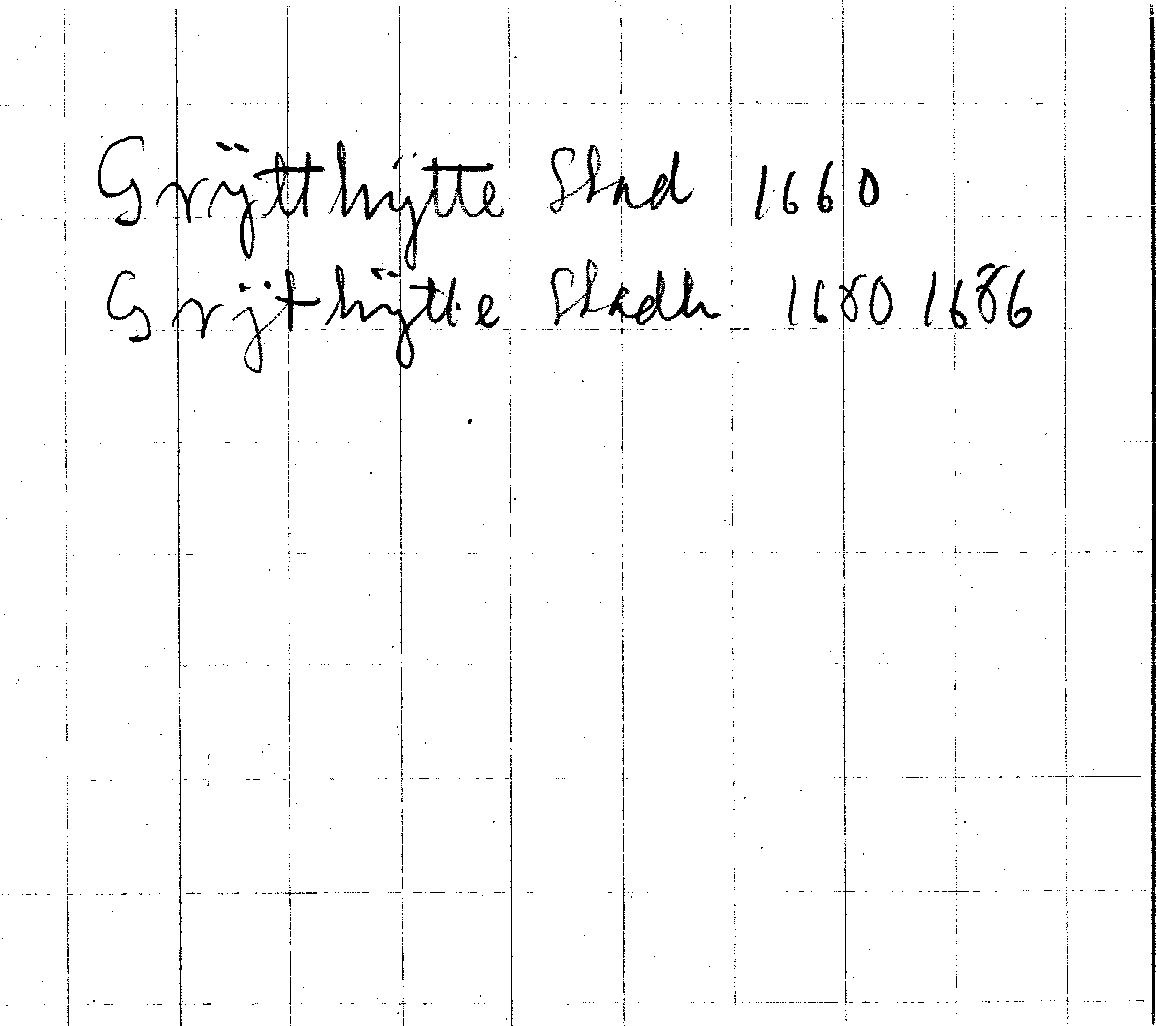 Grÿtthÿtte Stad 1660
Grÿthÿtte Stadh 1680 1686